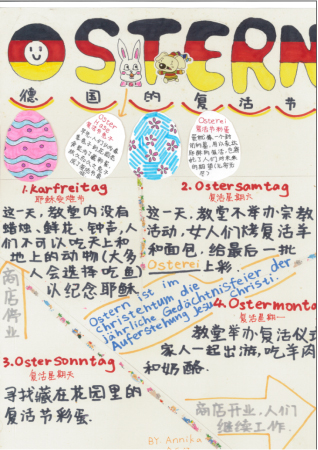 OSTERN
德国的复活节
Oster
Hase
Osterei
复活节彩蛋
1.Karfreitag
耶稣受难节
这一天,教堂内没有
蜡烛、鲜花、钟声,人
们不可以吃天上和
地上的动物(大多
人会选择吃鱼)
以纪念耶稣.
2.Ostersamtag
复活星期六
这一天,教堂不举办宗教
活动,女人们烤复活羊
和面包,给最后一批
Osterei 上彩.
商店停业
Ostern ist im
Christentum die
jährliche Gedächtnisfeier der
Auferstehung Jesu Christi.
3.OsterSonntag
复活星期天
寻找藏在花园里的
复活节彩蛋.
4.Ostermonta
复活星期一
教堂举办复活仪式
家人一起出游,吃羊肉
和奶酪.
商店开业,人们
继续工作.
BY: Annika